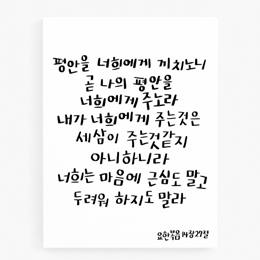 평안을 너희에게 끼치노니
곧 나의 평안을
너희에게 주노라
내가 너희에게 주는것은
세상이 주는것같지
아니하니라
너희는 마음에 근심도 말고
두려워 하지도 말라
요한복음 14장 27절